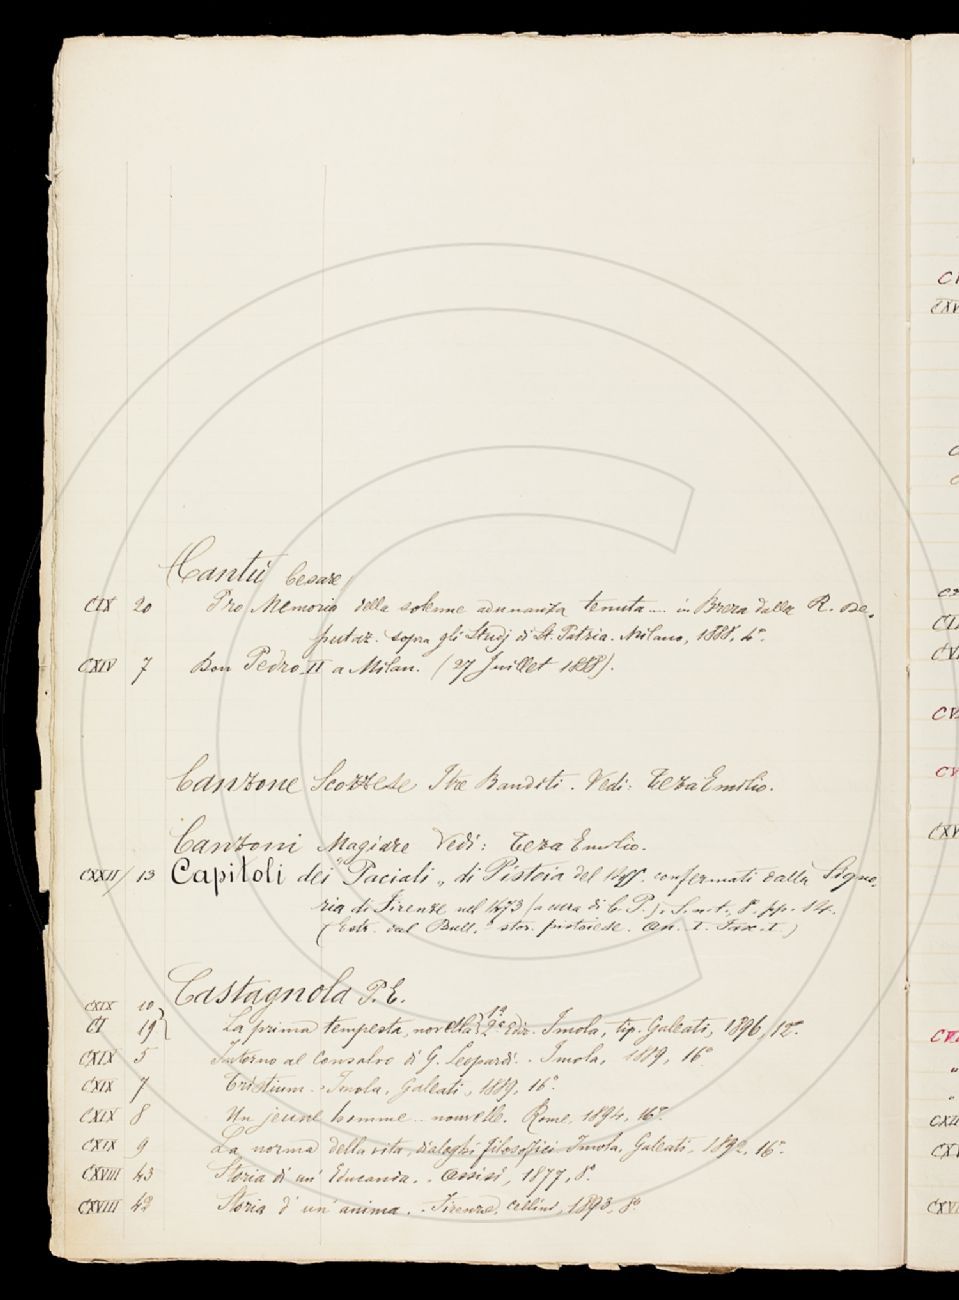 Cantù Cesare
CIX 20 Pro Memoria della solenne adunanza tenuta .... in Brera dalla R. De-
putaz. sopra gli Studj di St. Patria. Milano, 1888, 4°.
CXIV 7 Don Pedro II a Milan. (27 Juillet 1888).
Canzone Scozzese Tre Banditi. Vedi: Teza Emilio.
Canzoni Magiare Vedi: Teza Emilio.
CXXII/13 Capitoli dei "Paciali" di Pistoia del confermati dalla Signo-
ria di Firenze nel 1473 (a cura di C. P.). S.n.t., 8°, pp. 14.
(Estr. dal Bull.° stor. pistoiese. An. I. Fasc. I.)
Castagnola P. E.
CXIX 10
CI 19 La prima tempesta, novella 1ª 2ª Ediz. Imola, tip. Galeati, 1896, 12°.
CXIX 5 Intorno al Consalvo di G. Leopardi. - Imola, 16°.
CXIX 7 Tristium. - Imola, Galeati, 1889, 16°.
CXIX 8 Un jeune homme .. nouvelle. Rome, 1894, 16°.
CXIX 9 La norma della vita, dialoghi filosofici Imola, Galeati, 1892, 16°.
CXVIII 43 Storia di un' Educanda. . Assisi, 1877, 8°.
CXVIII 42 Storia d' un' anima. . Firenze, Cellini, 1893, 8°